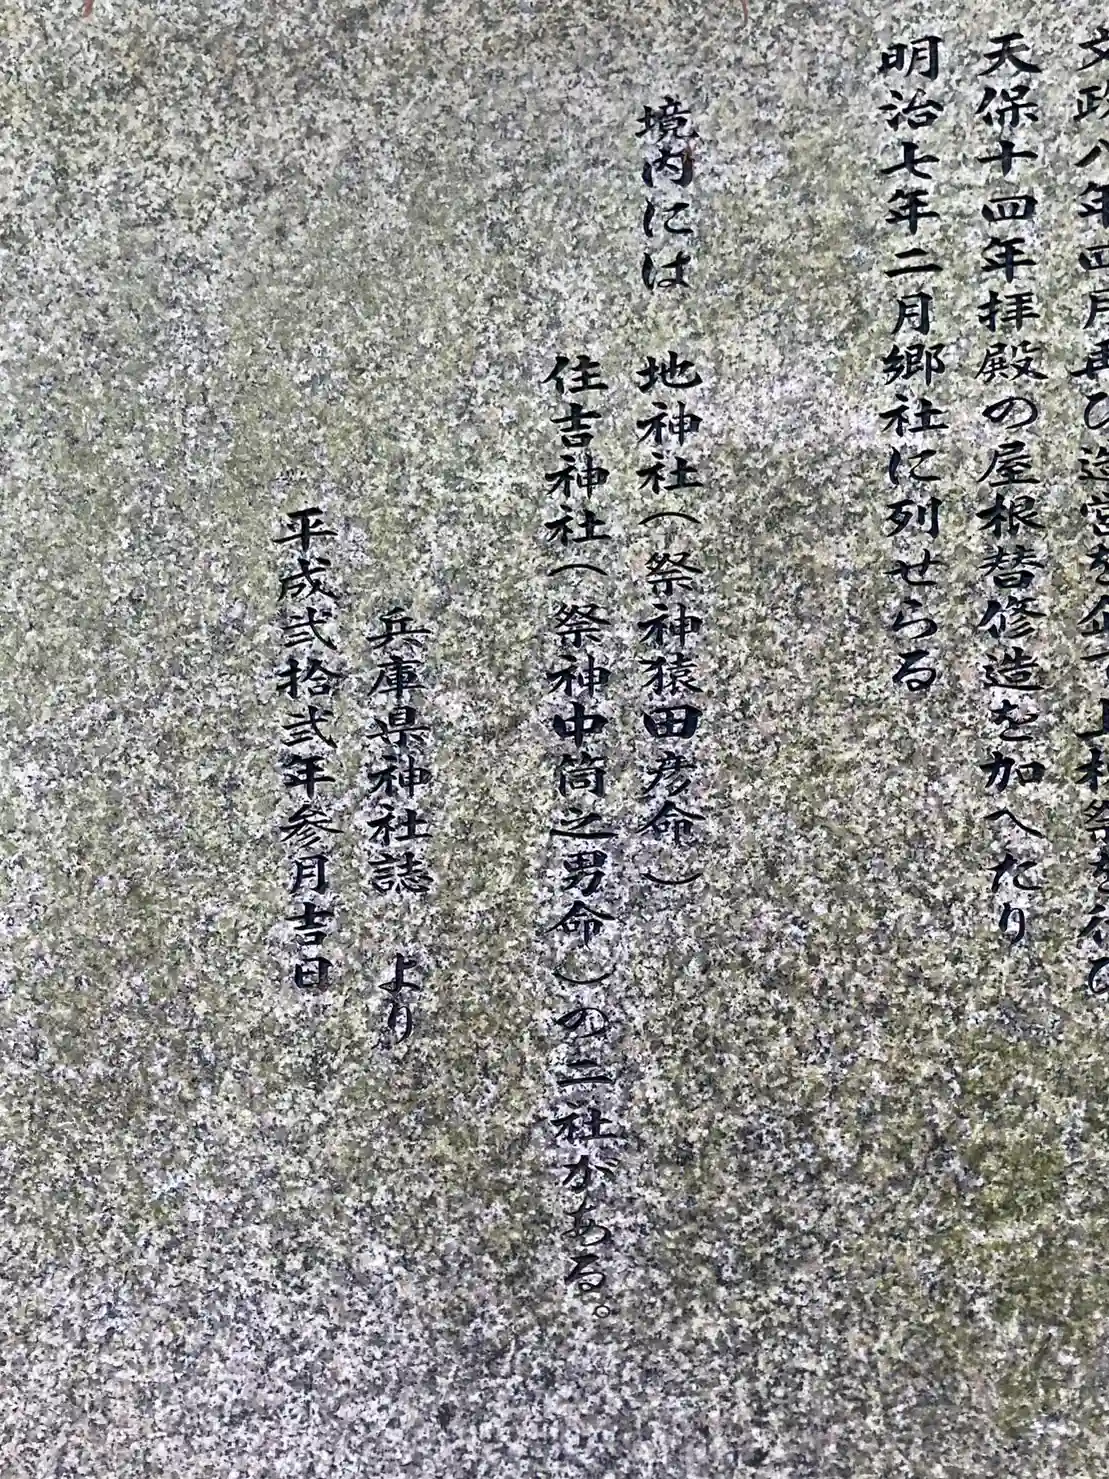 文政八年四月再び造営を企て上村祭を行ひ
天保十四年拝殿の屋根替修造を加へたり
明治七年二月郷社に列せらる
境内には 地神社（祭神猿田彦命）
住吉神社（祭神中筒之男命）の二社がある。
兵庫県神社誌 より
平成弐拾弐年参月吉日